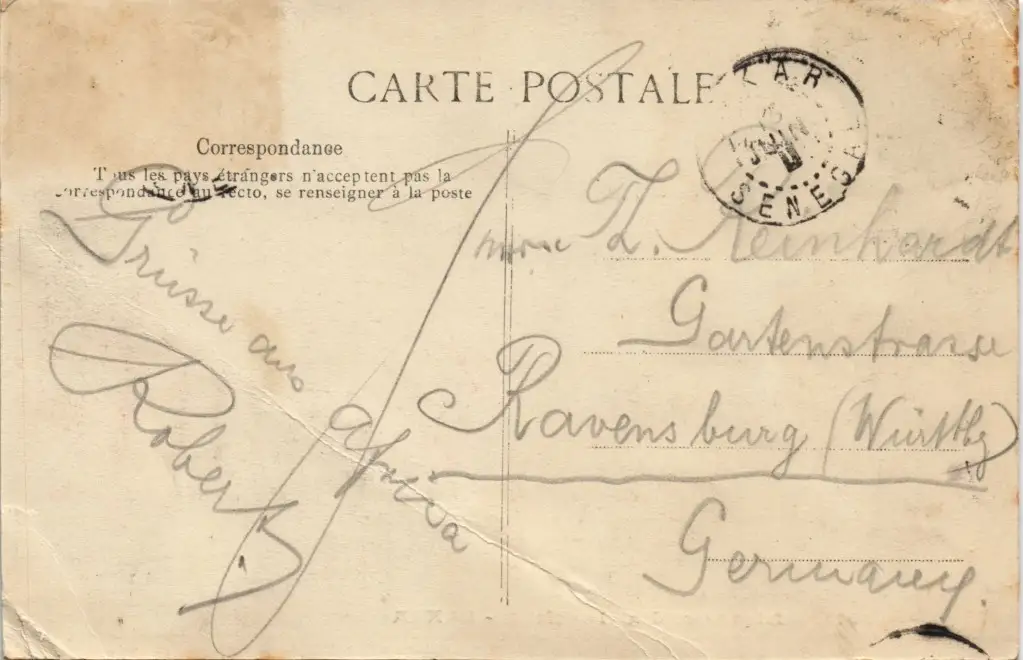 CARTE POSTALE
Correspondance
Tous les pays étrangers n'acceptent pas la
correspondance au recto, se renseigner à la poste
JUIN
SENEGAL
Grüsse aus
Afrika
Robert
T. Reinhardt
Gartenstrasse
Ravensburg (Württbg)
Germany